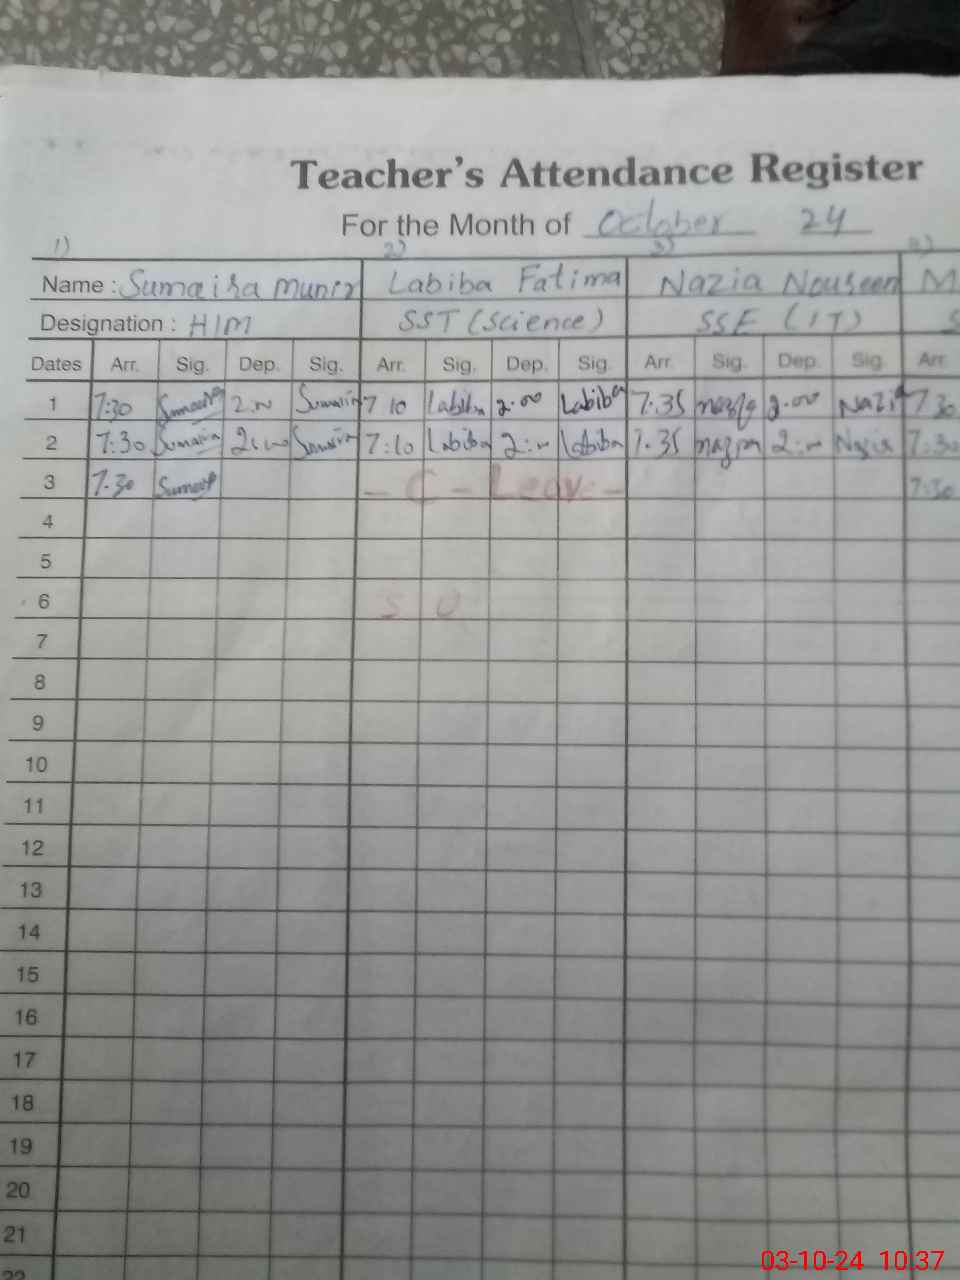 Teacher's Attendance Register
For the Month of October 24
1) 2) 3) 4)
Name : Sumaira Munir Labiba Fatima Nazia Nouseen M
Designation : H/M SST (Science) SSE (IT) S
Dates Arr. Sig. Dep. Sig. Arr. Sig. Dep. Sig. Arr. Sig. Dep. Sig. Arr.
1 7:30 Sumaira 2.00 Sumaira 7 10 Labiba 2.00 Labiba 7.35 Nazia 2.00 Nazia 7 30
2 7:30 Sumaira 2:00 Sumaira 7:10 Labiba 2:00 Labiba 7.35 Nazia 2:00 Nazia 7:30
3 7.30 Sumaira - C - Leave - 7:30
4
5
6 S U
7
8
9
10
11
12
13
14
15
16
17
18
19
20
21
22
03-10-24 10:37